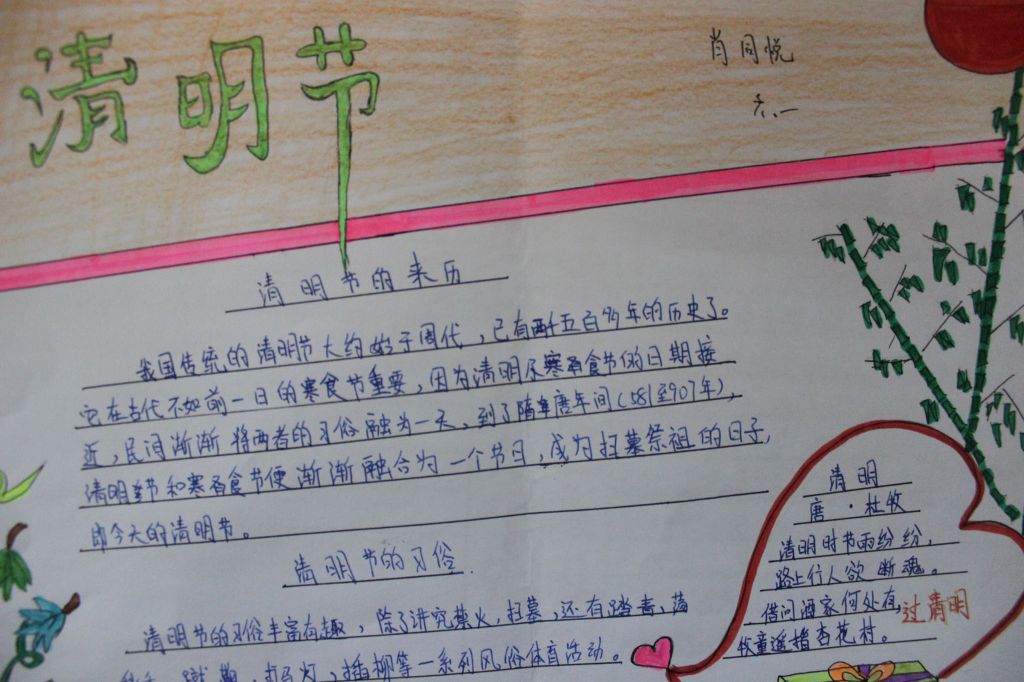 清明节
肖同悦
六.一
清明节的来历
我国传统的清明节大约始于周代，已有两千五百多年的历史了。
它在古代不如前一日的寒食节重要，因为清明及寒食节的日期接
近，民间渐渐将两者的习俗融为一天，到了隋唐年间(581至907年)，
清明节和寒食节便渐渐融合为一个节日，成为扫墓祭祖的日子，
即今天的清明节。
清明节的习俗
清明节的习俗丰富有趣，除了讲究禁火，扫墓，还有踏青，荡
，插柳等一系列风俗体育活动。
清明
唐·杜牧
清明时节雨纷纷，
路上行人欲断魂。
借问酒家何处有，
牧童遥指杏花村。
过清明